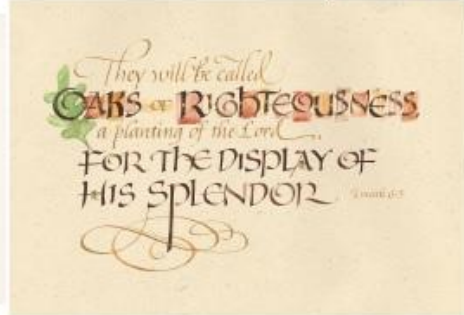 They will be called
OAKS OF RIGHTEOUSNESS
a planting of the Lord
FOR THE DISPLAY OF
HIS SPLENDOR
Isaiah 61:3